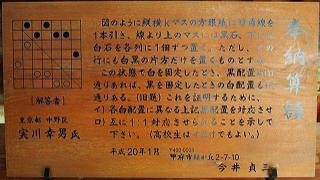 奉納算額
図のように縦横kマスの方眼紙に対角線を
1本引き、線より上のマスには黒石、下には
白石を各列に1個ずつ置く。ただし、
行にも白黒の片方だけを置くものとする。
この状態で白を固定したとき、黒配置が
通りあれば、黒を固定したときの白配置も
通りある。(旧題)これを証明するために、
イ)各白配置に異なる上記黒配置を対応させ
ロ)互に1:1対応させ得ることを示して
下さい。(高校生は
でもよい。)
平成20年1月
甲府市
2-7-10
今井 貞三
【解答者】
東京都 中野区
実川 幸男氏